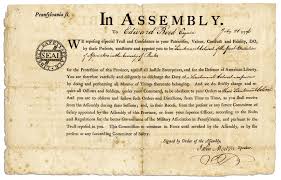 Pennsylvania ss.
In ASSEMBLY.
To Edward
WE reposing especial Trust and Confidence in your Patriotism, Valour, Conduct and Fidelity, DO,
by these Presents, constitute and appoint you to be Lieutenant Colonel of the
SEAL
for the Protection of this Province, against all hostile Enterprizes, and for the Defence of American Liberty.
You are therefore carefully and diligently to discharge the Duty of Lieutenant Colonel
by doing and performing all Manner of Things thereunto belonging. And we do strictly charge and re-
quire all Officers and Soldiers, under your Command, to be obedient to your Orders as Lieutenant Colonel
And you are to observe and follow such Orders and Directions, from Time to Time, as you shall receive
from the Assembly during their Sessions; and, in their Recess, from the present or any future Committee
of Safety appointed by the Assembly of this Province, or from your superior Officer, according to the Rules
and Regulations for the better Government of the Military Association in Pennsylvania, and pursuant to the
Trust reposed in you. This Commission to continue in Force until revoked by the Assembly, or by the
present or any succeeding Committee of Safety.
Signed by Order of the Assembly,
John Morton Speaker